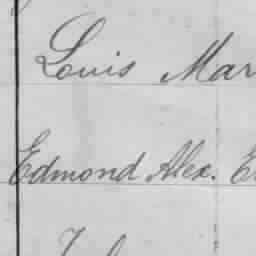 Louis Mar
Edmond Alex. E